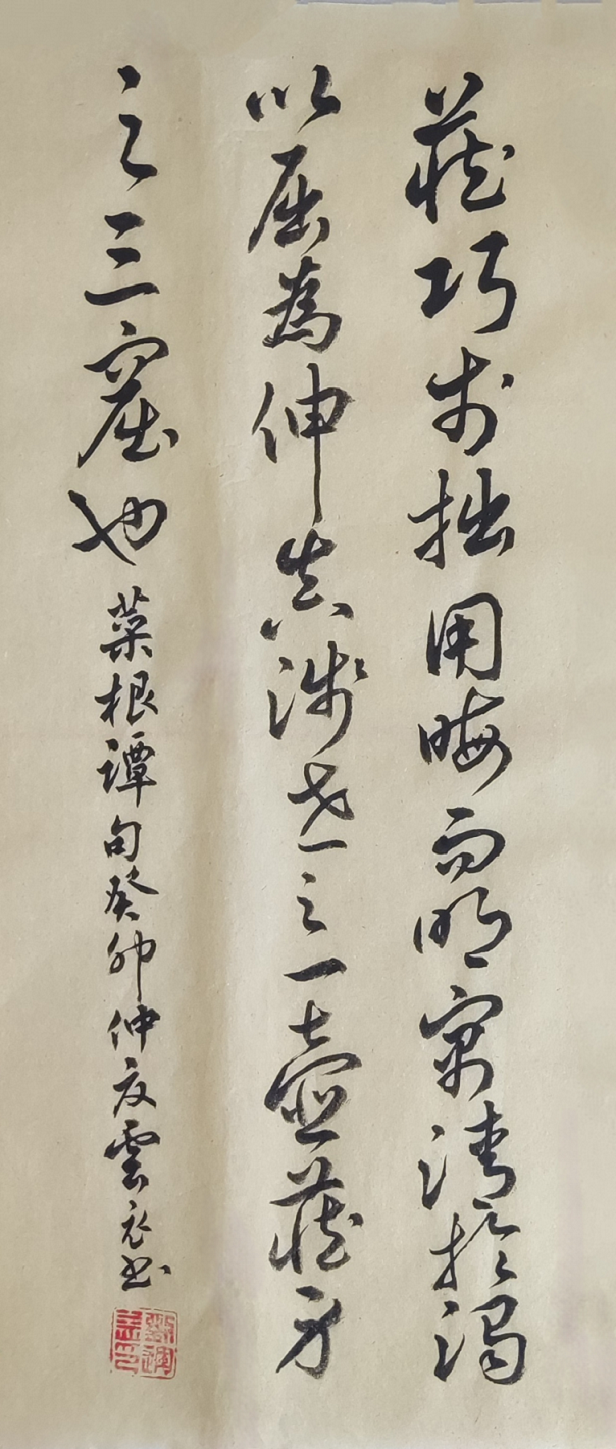 藏巧於拙用晦而明寓清於濁
以屈為伸真涉世之一壺藏身
之三窟也
菜根譚句癸卯仲夏雲衣書